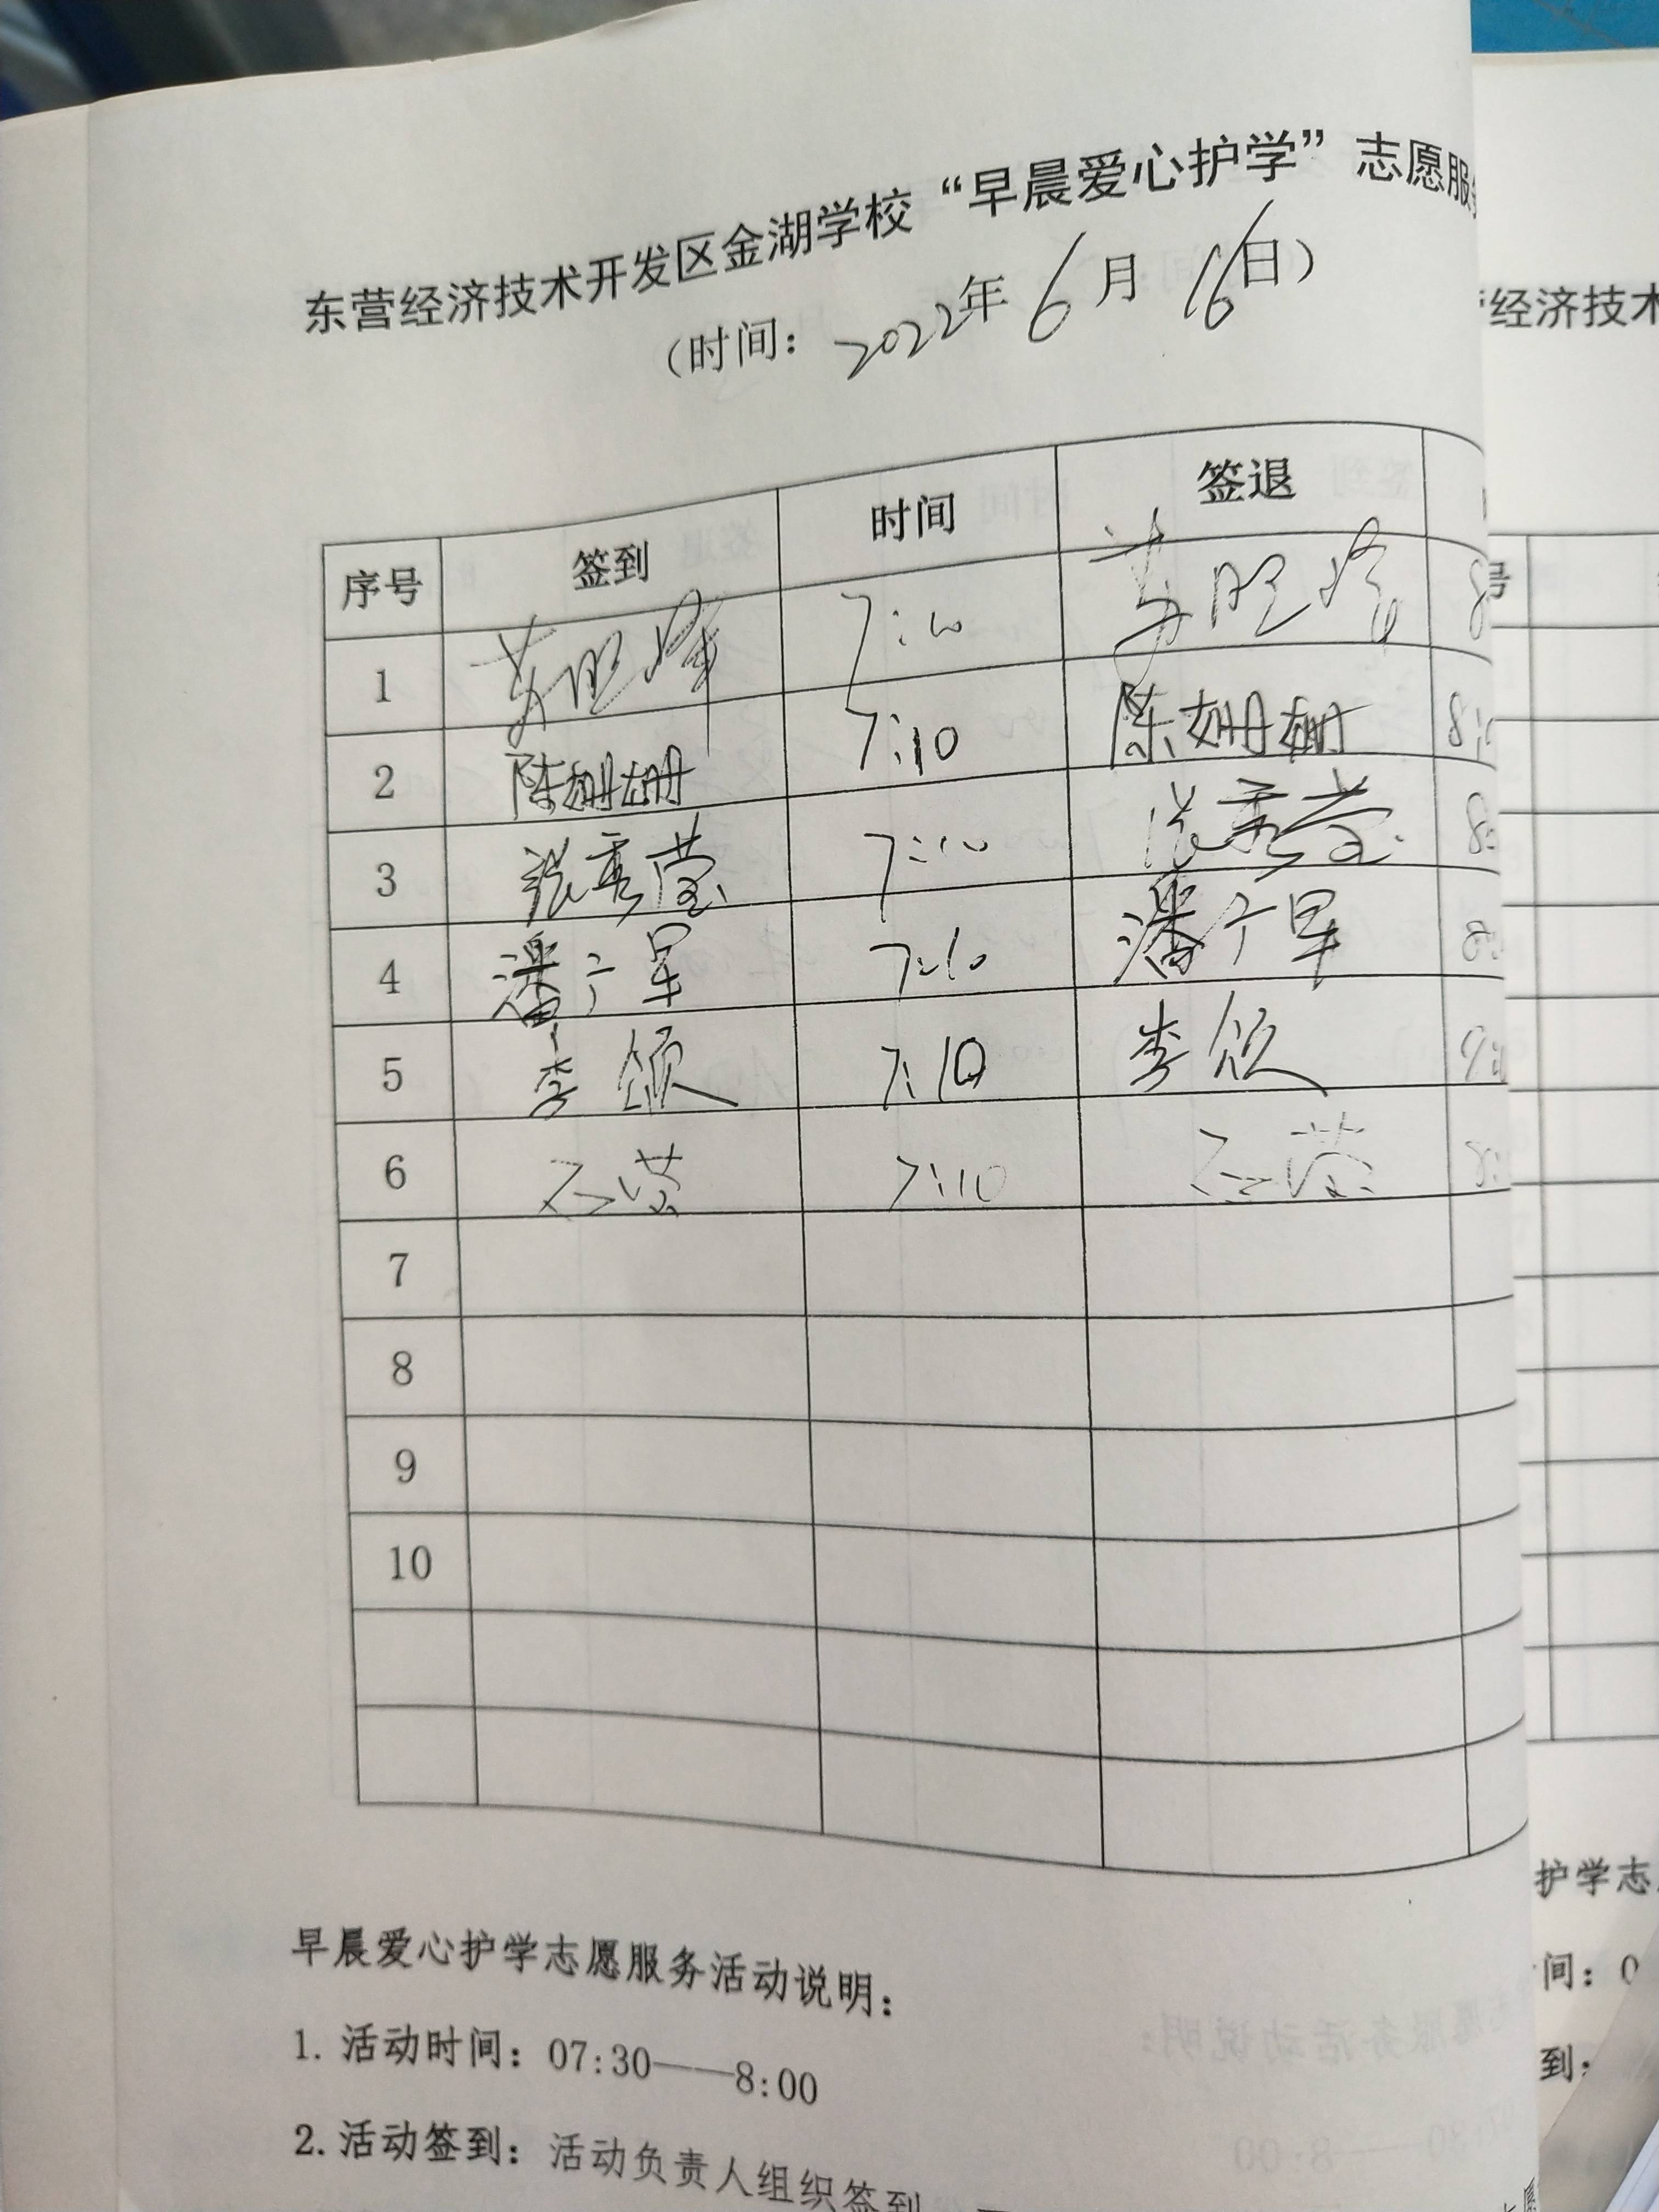 东营经济技术开发区金湖学校“早晨爱心护学”志愿服
(时间: 2022年6月16日)
序号 签到 时间 签退
1 7:10
2 陈姗姗 7:10 陈姗姗
3 张秀莹 7:10 张秀莹
4 潘广军 7:10 潘广军
5 李颂 7:10 李颂
6 石莹 7:10 石莹
7
8
9
10
早晨爱心护学志愿服务活动说明:
1. 活动时间: 07:30——8:00
2. 活动签到: 活动负责人组织签到
经济技术
号
护学志
间: 0
到: